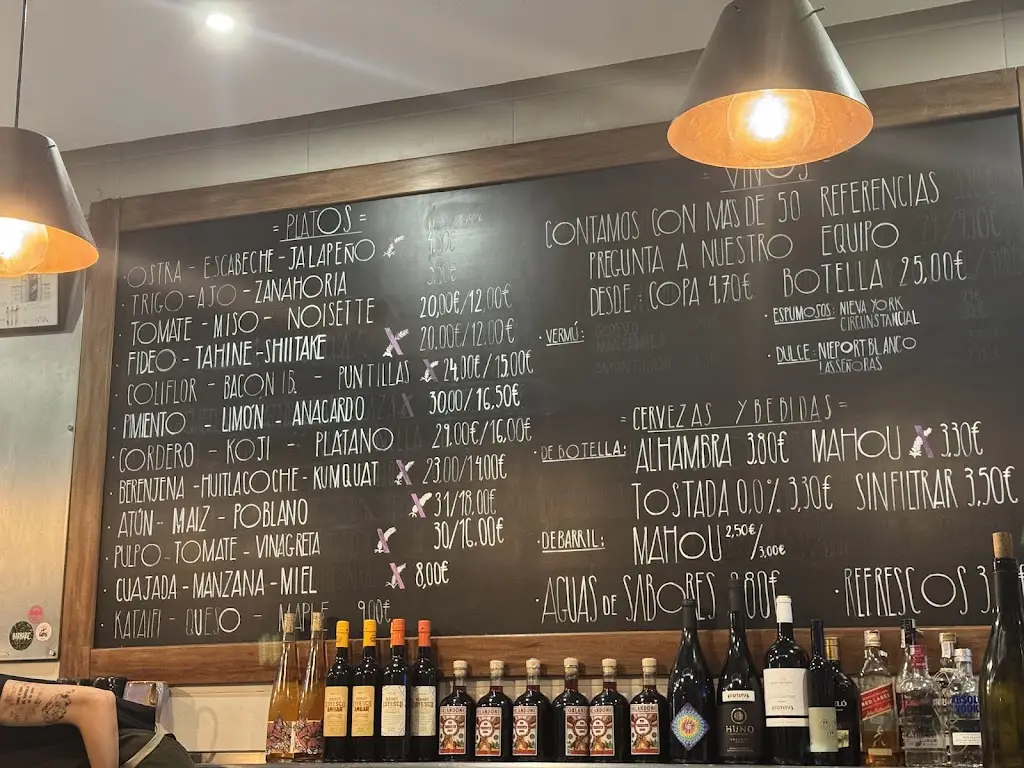 = PLATOS =
· OSTRA - ESCABECHE - JALAPEÑO
· TRIGO - AJO - ZANAHORIA
· TOMATE - MISO - NOISETTE 20,00€/12,00€
· FIDEO - TAHINE - SHIITAKE 20,00€/12,00€
· COLIFLOR - BACON IB. - PUNTILLAS 24,00€/15,00€
· PIMIENTO - LIMÓN - ANACARDO 30,00/16,50€
· CORDERO - KOJI - PLATANO 29,00€/16,00€
· BERENJENA - HUITLACOCHE - KUMQUAT 23,00/14,00€
· ATÚN - MAIZ - POBLANO 31/18,00€
· PULPO - TOMATE - VINAGRETA 30/16,00€
· CUAJADA - MANZANA - MIEL 8,00€
· KATAIFI - QUESO - MAPLE 9,00€
= VINOS =
CONTAMOS CON MÁS DE 50 REFERENCIAS
PREGUNTA A NUESTRO EQUIPO
DESDE: COPA 4,70€ BOTELLA 25,00€
· VERMÚ:
· ESPUMOSOS: NIEVA YORK
CIRCUNSTANCIAL
· DULCE: NIEPORT BLANCO
LAS SEÑORAS
= CERVEZAS Y BEBIDAS =
· DE BOTELLA: ALHAMBRA 3,80€ MAHOU 3,30€
TOSTADA 0,0% 3,30€ SIN FILTRAR 3,50€
· DE BARRIL: MAHOU 2,50€/3,00€
· AGUAS DE SABORES 80€ · REFRESCOS 3
HUNO
ABSOLUT